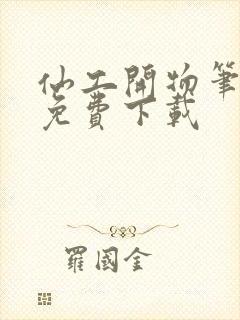 仙工開物筆
免費下載
羅國金